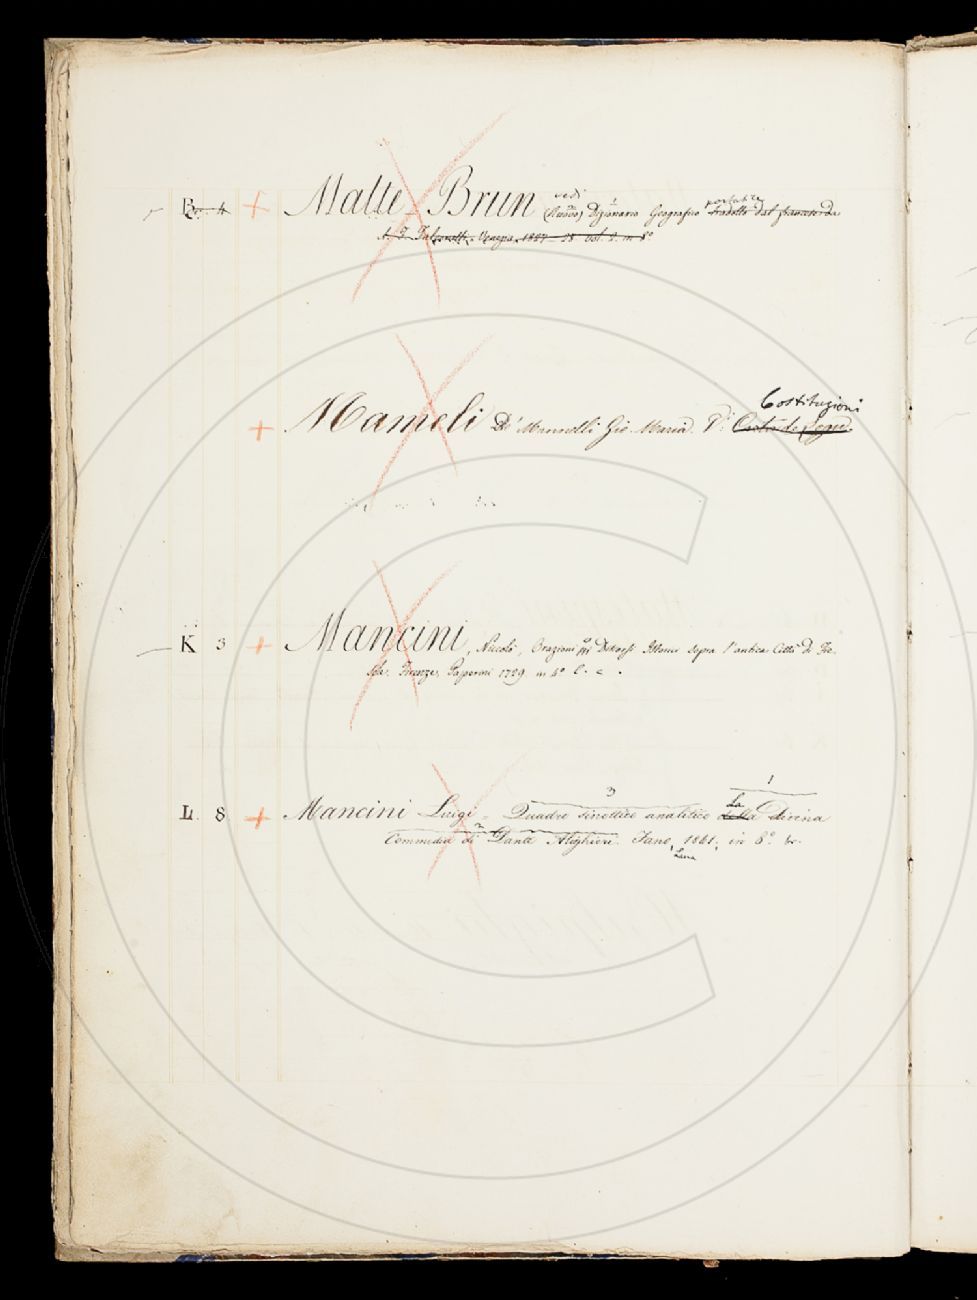 B. 4 + Malte-Brun vedi (Nuovo) Dizionario Geografico portatile tradotto dal francese da
A. F. Falconetti. Venezia, 1827-28 vol. 2. in 8°
+ Mameli De' Mannelli Gio. Maria. V: Costituzioni Carta de Logu.
K 3 + Mancini, Niccolò, Orazioni o Discorsi Istorici sopra l'antica Città di Fie-
sole. Firenze, Paperini 1729 in 4° l. c.
3 1
L. 8. + Mancini Luigi - Quadro sinottico analitico della La Divina
2
Commedia di Dante Alighieri. Fano, Lana 1861, in 8°. br.